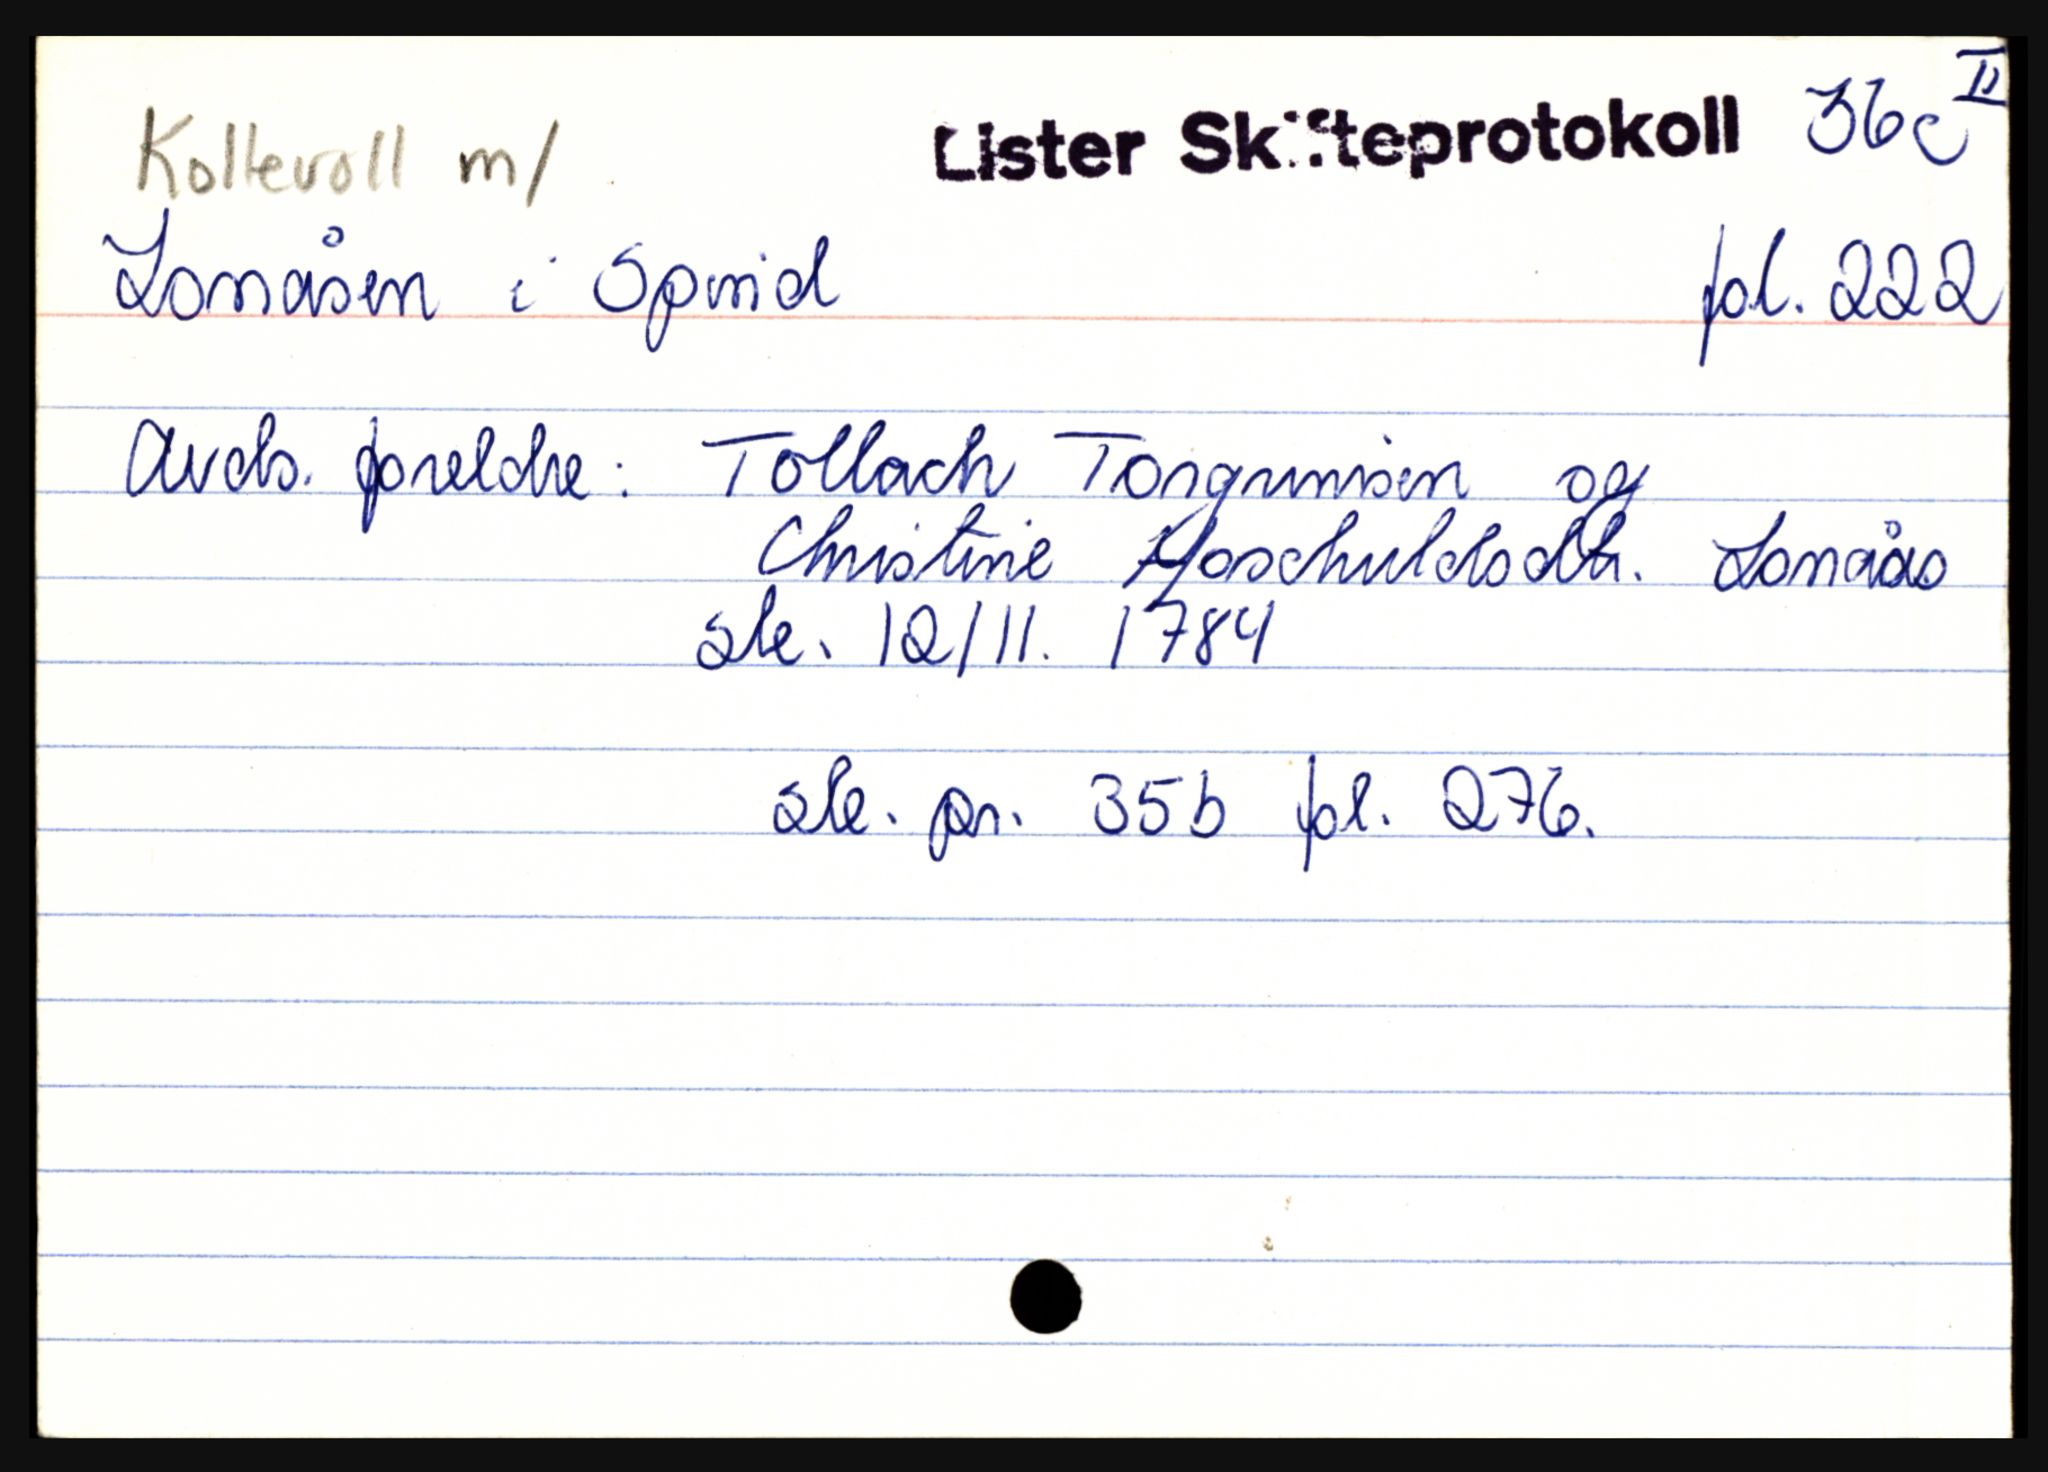 Kollevoll m/ Lister Skifteprotokoll 36c II
Lonåsen i Spind fol. 222
Avds. foreldre: Tollach Torgrimsen og
Christine Hoschuldsdtr. Lonåås
sk. 12/11. 1784
sk. pr. 35b fol. 276.